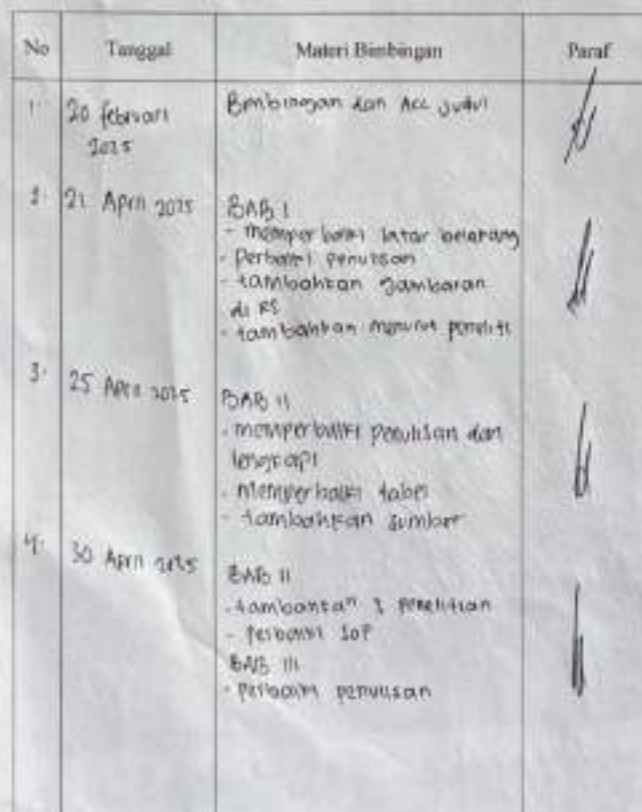 No Tanggal Materi Bimbingan Paraf
1. 20 februari 2025 Bimbingan dan Acc Judul
2. 21 April 2025 BAB I
- memperbaiki latar belakang
- Perbaiki penulisan
- tambahkan gambaran
di RS
- tambahkan menurut peneliti
3. 25 April 2025 BAB II
- memperbaiki penulisan dan
lengkapi
- memperbaiki tabel
- tambahkan sumber
4. 30 April 2025 BAB II
- tambahkan penelitian
- perbaiki SOP
BAB III
- perbaiki penulisan